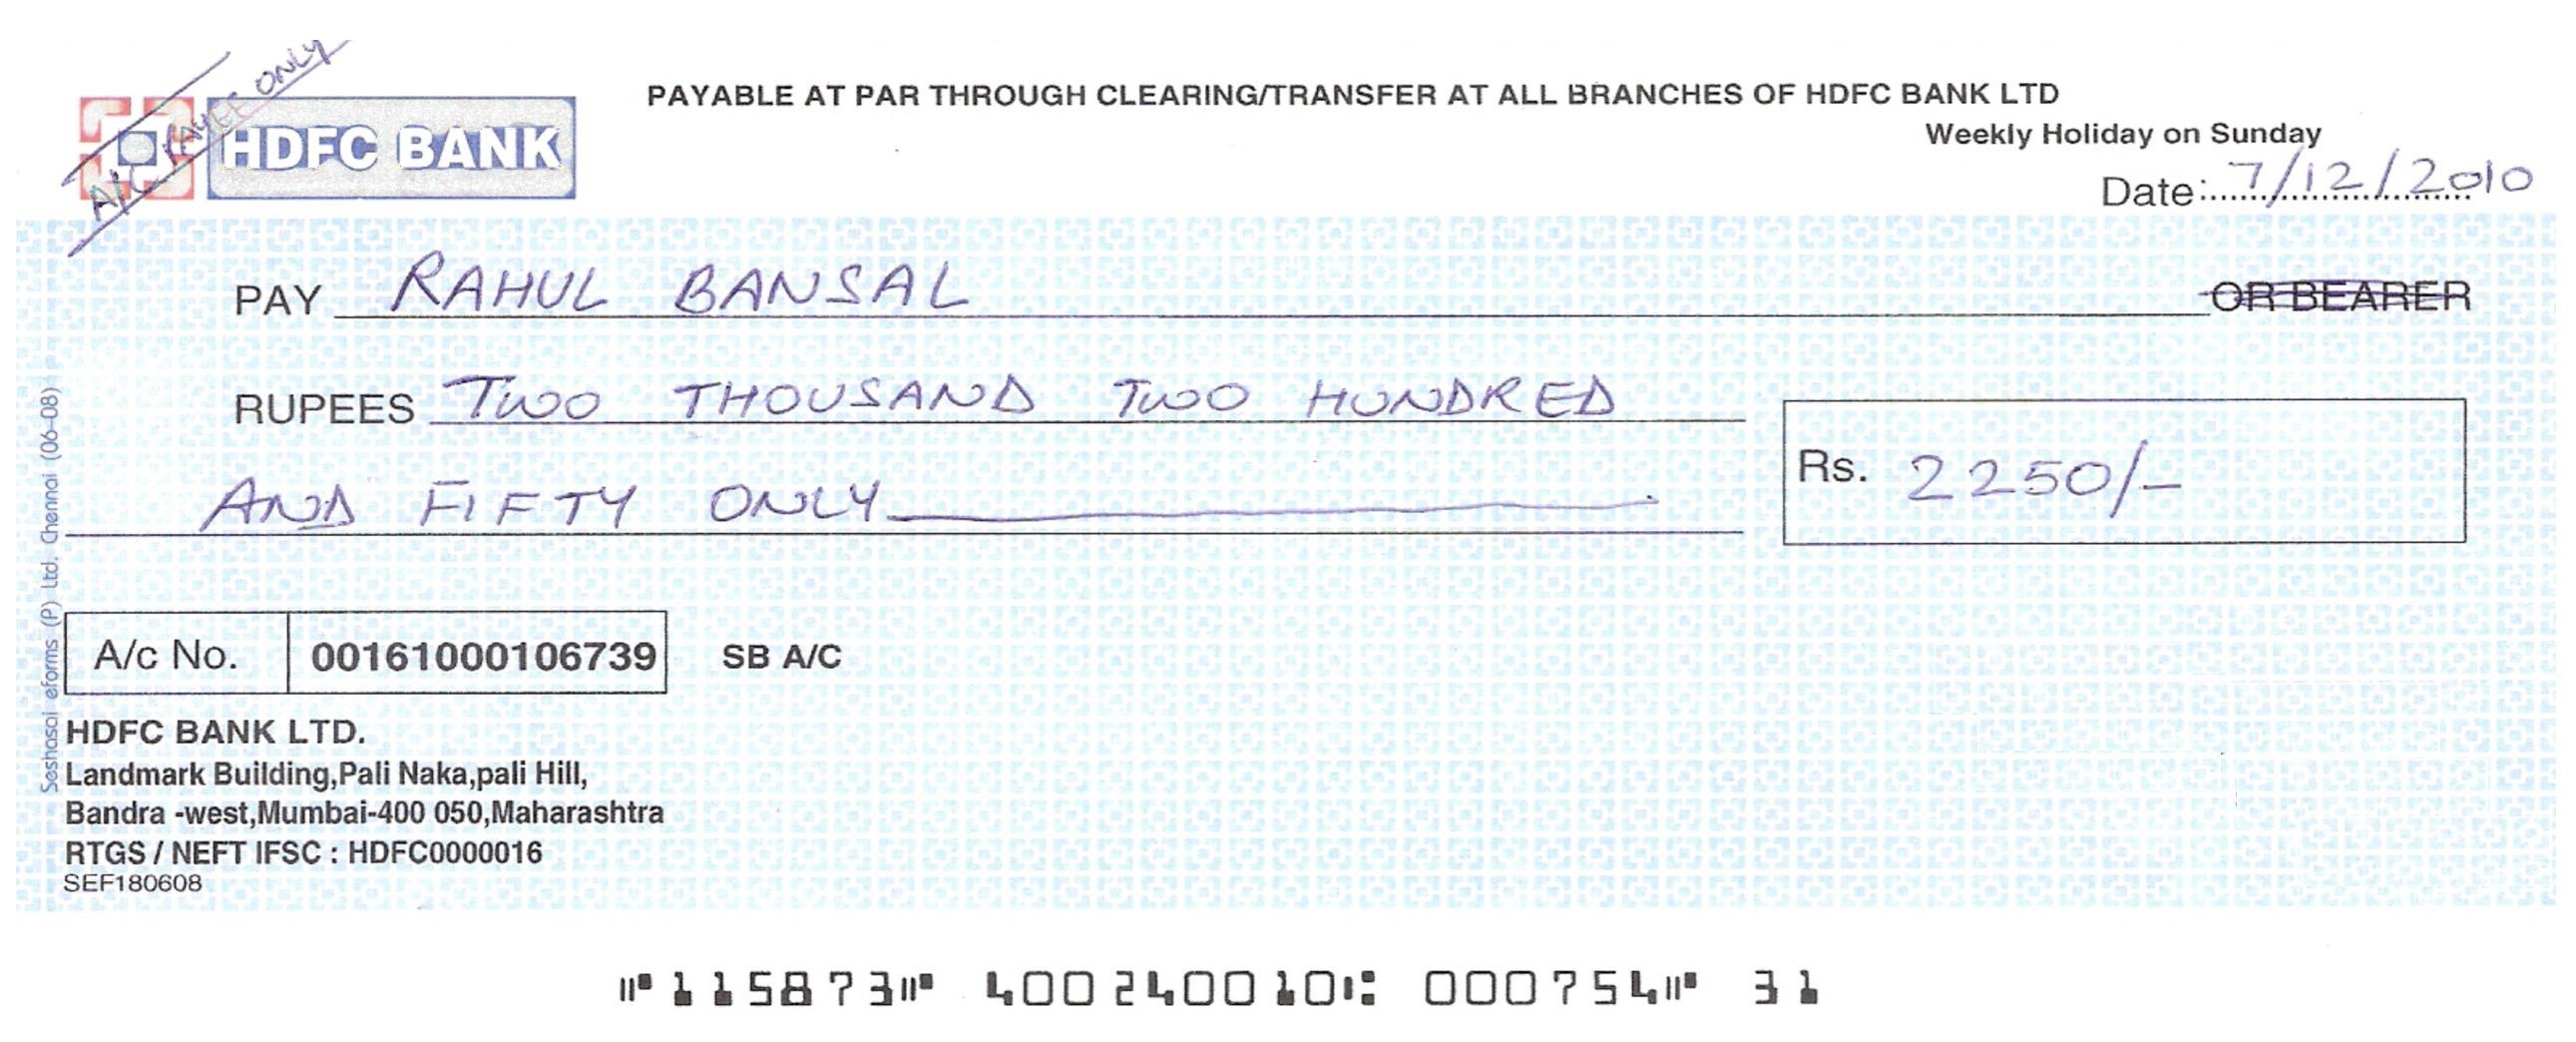 A/C PAYEE ONLY
HDFC BANK
PAYABLE AT PAR THROUGH CLEARING/TRANSFER AT ALL BRANCHES OF HDFC BANK LTD
Weekly Holiday on Sunday
Date: 7/12/2010
PAY RAHUL BANSAL OR BEARER
RUPEES TWO THOUSAND TWO HUNDRED
AND FIFTY ONLY
Rs. 2250/-
A/c No. 00161000106739 SB A/C
HDFC BANK LTD.
Landmark Building,Pali Naka,pali Hill,
Bandra -west,Mumbai-400 050,Maharashtra
RTGS / NEFT IFSC : HDFC0000016
SEF180608
Seshasai eforms (P) Ltd. Chennai (06-08)
⑈115873⑈ 400240010⑆ 000754⑈ 31